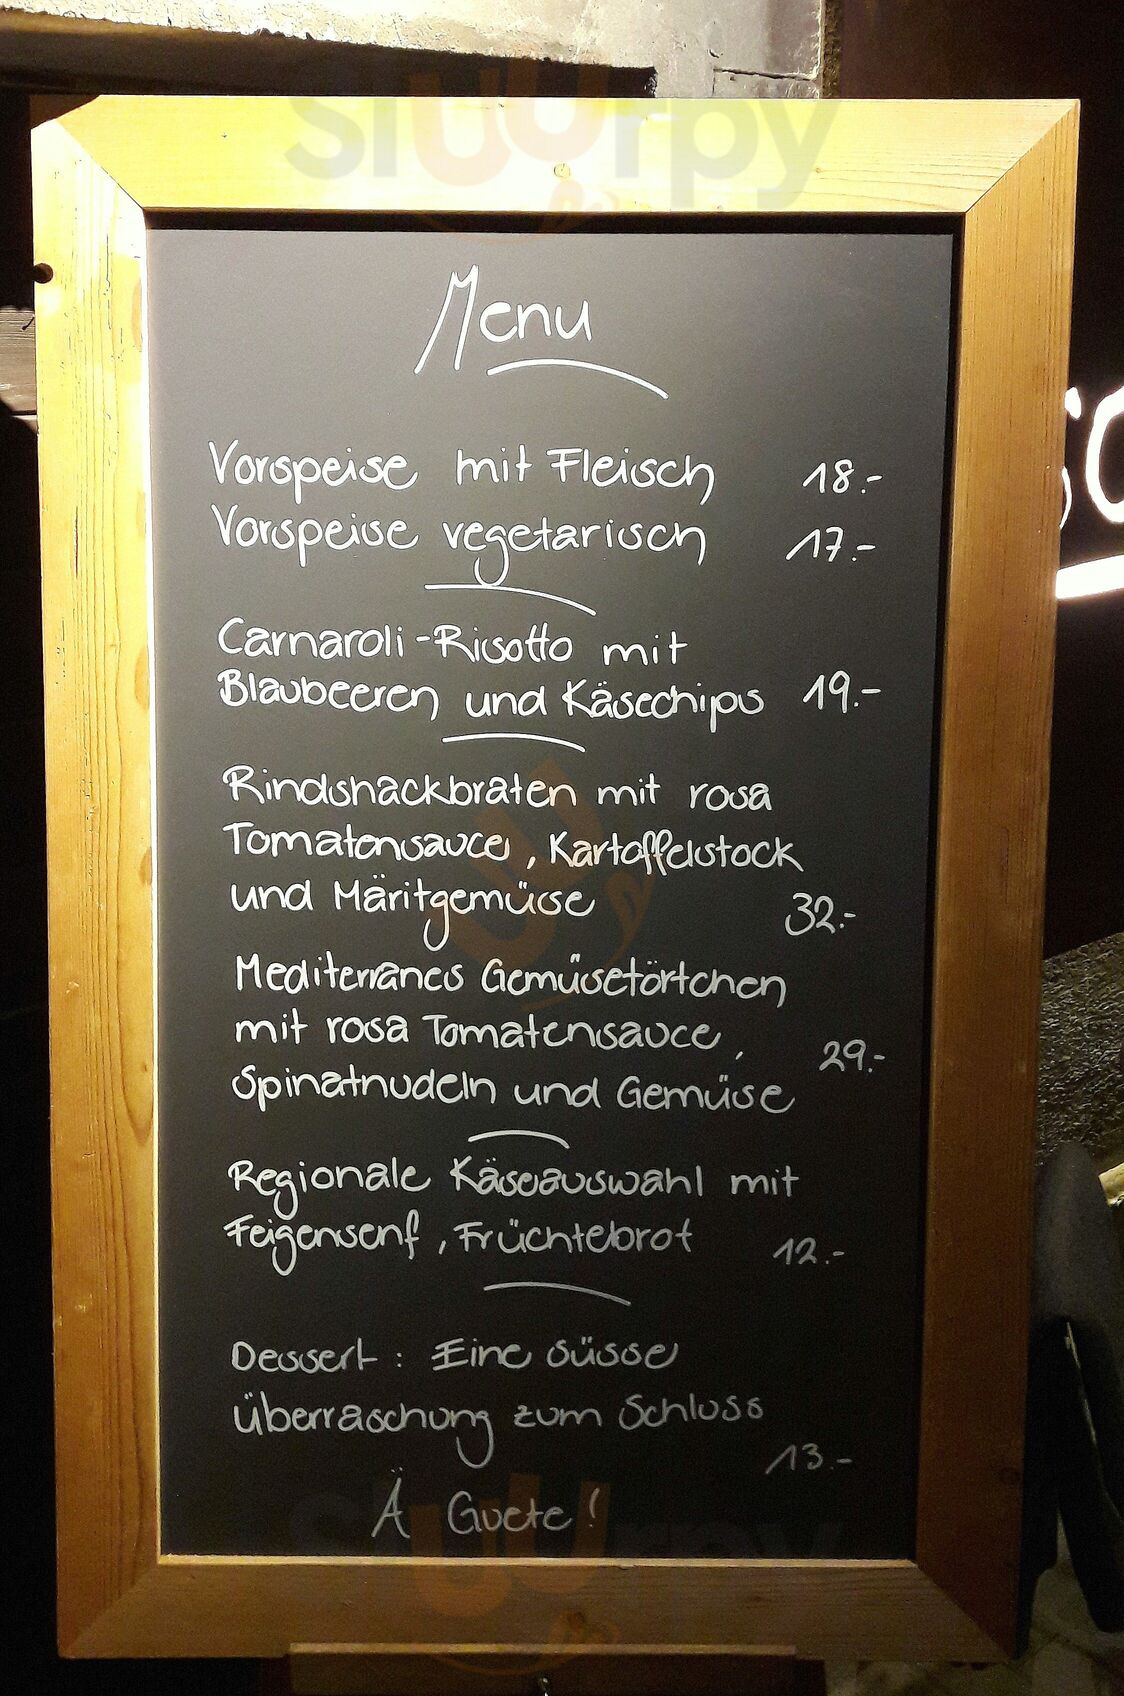 sluurpy
Menu
Vorspeise mit Fleisch 18.-
Vorspeise vegetarisch 17.-
Carnaroli-Risotto mit
Blaubeeren und Käsechips 19.-
Rindshackbraten mit rosa
Tomatensauce, Kartoffelstock
und Märitgemüse 32.-
Mediterranes Gemüsetörtchen
mit rosa Tomatensauce,
Spinatnudeln und Gemüse 29.-
Regionale Käseauswahl mit
Feigensenf, Früchtebrot 12.-
Dessert: Eine süsse
Überraschung zum Schluss
13.-
Ä Guete!
sluurpy